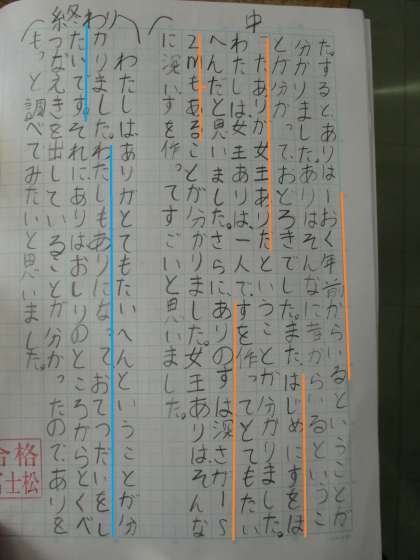 中
た。するとありは一おく年前からいるということが
分かりました。ありはそんなに昔からいるというこ
とが分かって、おどろきでした。また、はじめにすをほ
ったありが女王ありだということが分かりました。
わたしは、女王ありは、一人ですを作ってとてもたい
へんだと思いました。さらに、ありのすは深さが1〜
2mもあることが分かりました。女王ありはそんな
に深いすを作ってすごいと思いました。
終わり
わたしは、ありがとてもたいへんということが分
かりました。わたしもありになっておてつだいをし
たいです。それにありはおしりのところからとくべ
つなえきを出していることが分かったのでありを
もっと調べてみたいと思いました。
合格
士松